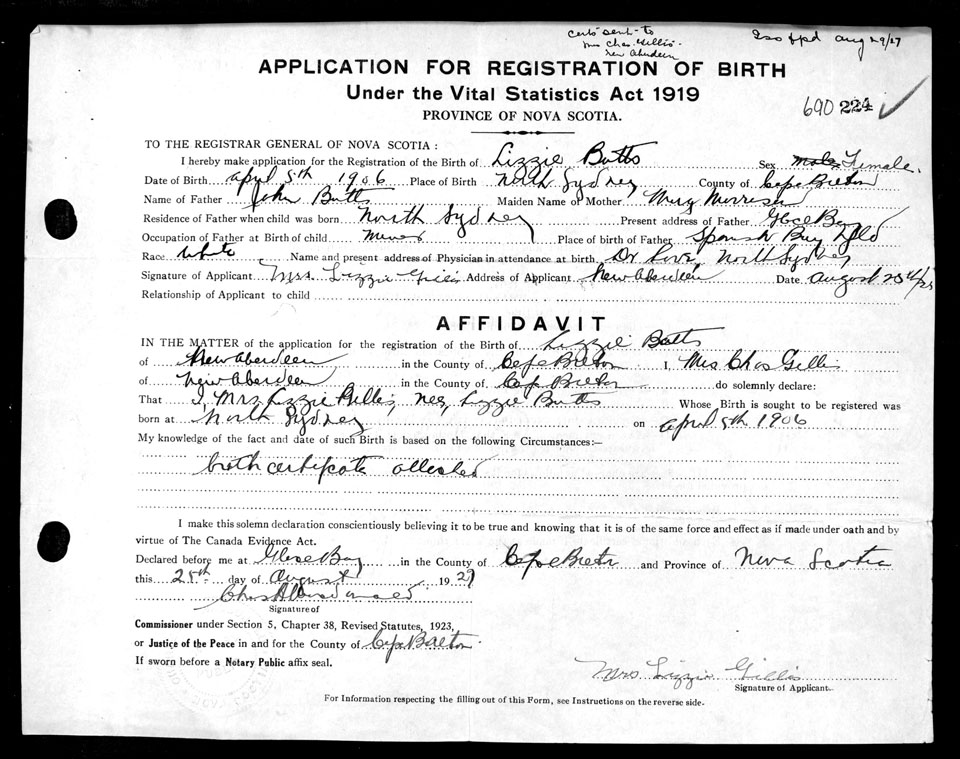 certs sent to
Mrs Chas. Gillis.
New Aberdeen
pd Aug 29/27
APPLICATION FOR REGISTRATION OF BIRTH
Under the Vital Statistics Act 1919
PROVINCE OF NOVA SCOTIA.
690 224
TO THE REGISTRAR GENERAL OF NOVA SCOTIA:
I hereby make application for the Registration of the Birth of Lizzie Butts Sex Male Female.
Date of Birth April 5th 1906 Place of Birth North Sydney County of Cape Breton
Name of Father John Butts Maiden Name of Mother Mary Morrison
Residence of Father when child was born North Sydney Present address of Father Glace Bay
Occupation of Father at Birth of child Miner Place of birth of Father Spanish Bay Nfld
Race white Name and present address of Physician in attendance at birth Dr Love, North Sydney
Signature of Applicant Mrs. Lizzie Gillis Address of Applicant New Aberdeen Date August 25th
Relationship of Applicant to child
AFFIDAVIT
IN THE MATTER of the application for the registration of the Birth of Lizzie Butts
of New Aberdeen in the County of Cape Breton I, Mrs Chas Gillis
of New Aberdeen in the County of Cape Breton do solemnly declare:
That I, Mrs Lizzie Gillis, nee, Lizzie Butts Whose Birth is sought to be registered was
born at North Sydney on April 5th 1906
My knowledge of the fact and date of such Birth is based on the following Circumstances:—
birth certificate attached
I make this solemn declaration conscientiously believing it to be true and knowing that it is of the same force and effect as if made under oath and by
virtue of The Canada Evidence Act.
Declared before me at Glace Bay in the County of Cape Breton and Province of Nova Scotia
this 25th day of August 1927
Signature of
Commissioner under Section 5, Chapter 38, Revised Statutes, 1923,
or Justice of the Peace in and for the County of Cape Breton.
If sworn before a Notary Public affix seal.
Mrs Lizzie Gillis
Signature of Applicant.
For Information respecting the filling out of this Form, see Instructions on the reverse side.